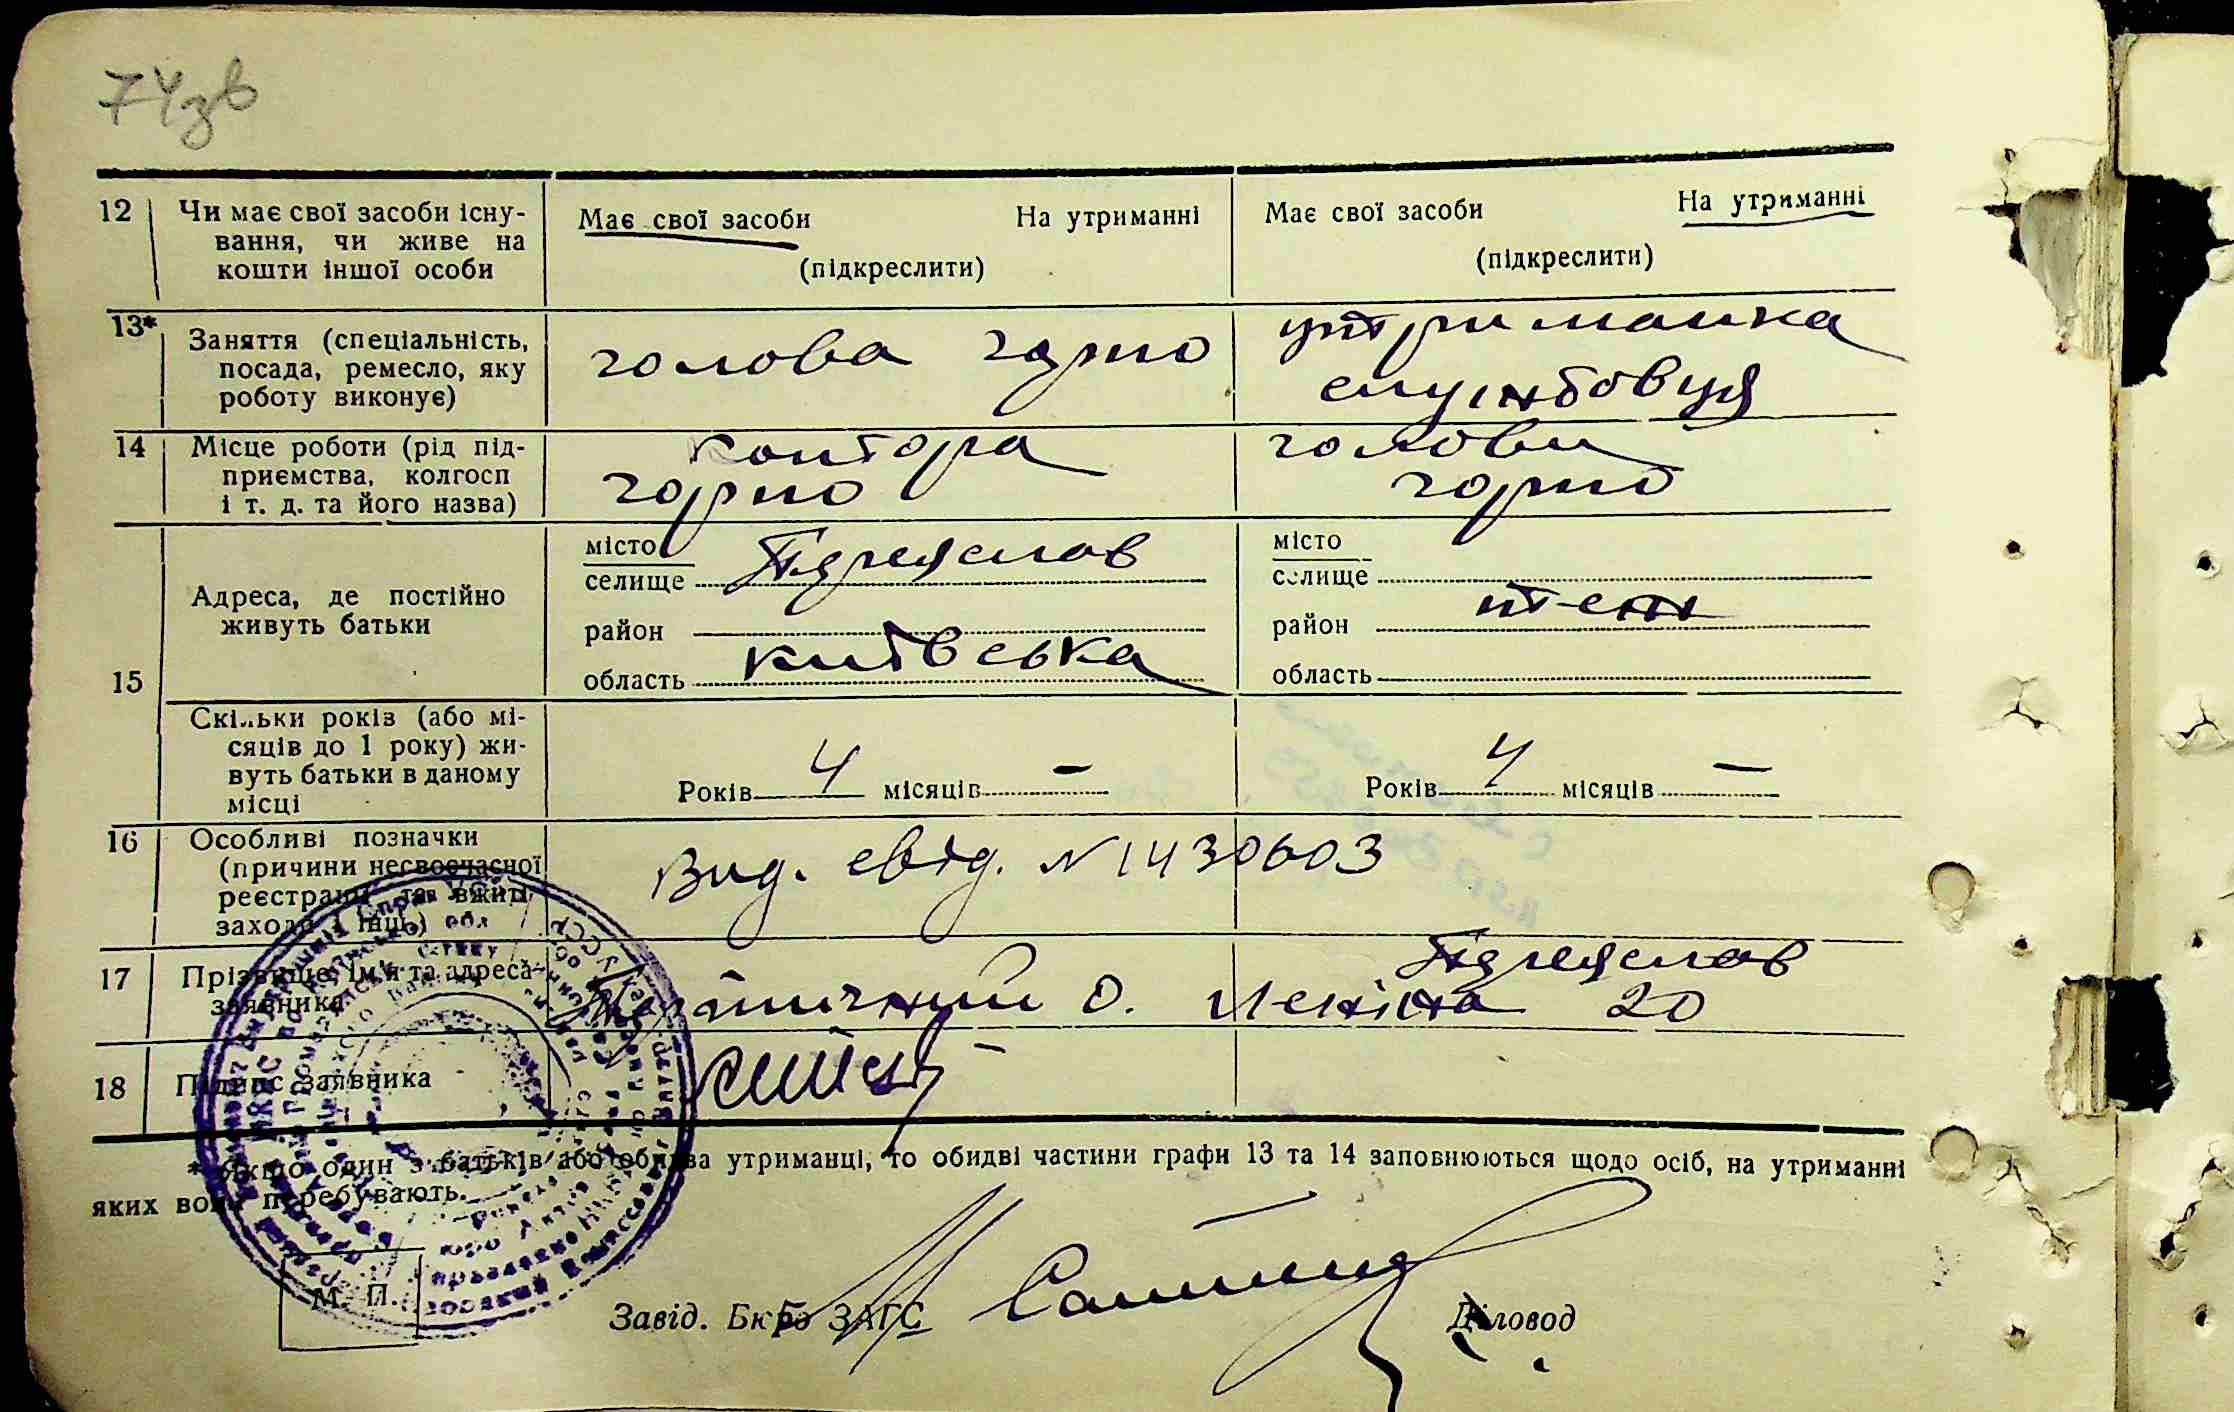 74зв
12 Чи має свої засоби існу-
вання, чи живе на
кошти іншої особи
Має свої засоби На утриманні
(підкреслити)
Має свої засоби На утриманні
(підкреслити)
13* Заняття (спеціальність,
посада, ремесло, яку
роботу виконує)
голова горпо
утриманка
службовця
14 Місце роботи (рід під-
приємства, колгосп
і т. д. та його назва)
контора
горпо
голови
горпо
15 Адреса, де постійно
живуть батьки
місто
селище Переяслав
район
область київська
місто
селище
район теж
область
Скільки років (або мі-
сяців до 1 року) жи-
вуть батьки в даному
місці
Років 4 місяців —
Років 4 місяців —
16 Особливі позначки
(причини несвоєчасної
реєстрації та вжиті
заходи і інш.)
Вид. свід. N 1430603
17 Прізвище, ім'я та адреса
заявника
О. Переяслав
Леніна 20
18 Підпис заявника
* Якщо один з батьків або обидва утриманці, то обидві частини графи 13 та 14 заповнюються щодо осіб, на утриманні
яких вони перебувають.
М. П.
Завід. Бюро ЗАГС Діловод